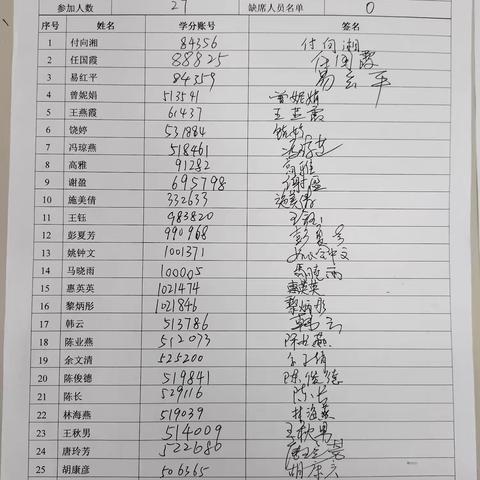 参加人数 27 缺席人员名单 0
序号 姓名 学分账号 签名
1 付向湘 84356 付向湘
2 任国霞 88825 任国霞
3 易红平 84359 易红平
4 曾妮娟 513541 曾妮娟
5 王燕霞 61437 王燕霞
6 饶婷 531884 饶婷
7 冯琼燕 518461 冯琼燕
8 高雅 91282 高雅
9 谢盈 695798 谢盈
10 施美倩 332633 施美倩
11 王钰 983820 王钰
12 彭夏芳 990968 彭夏芳
13 姚钟文 1001371 姚钟文
14 马晓雨 100005 马晓雨
15 惠英英 1021474 惠英英
16 黎炳彤 1021846 黎炳彤
17 韩云 513786 韩云
18 陈业燕 512073 陈业燕
19 余文清 525200
20 陈俊德 519841 陈俊德
21 陈长 529116 陈长
22 林海燕 519039 林海燕
23 王秋男 514009 王秋男
24 唐玲芳 522680
25 胡康彦 506365 胡康彦